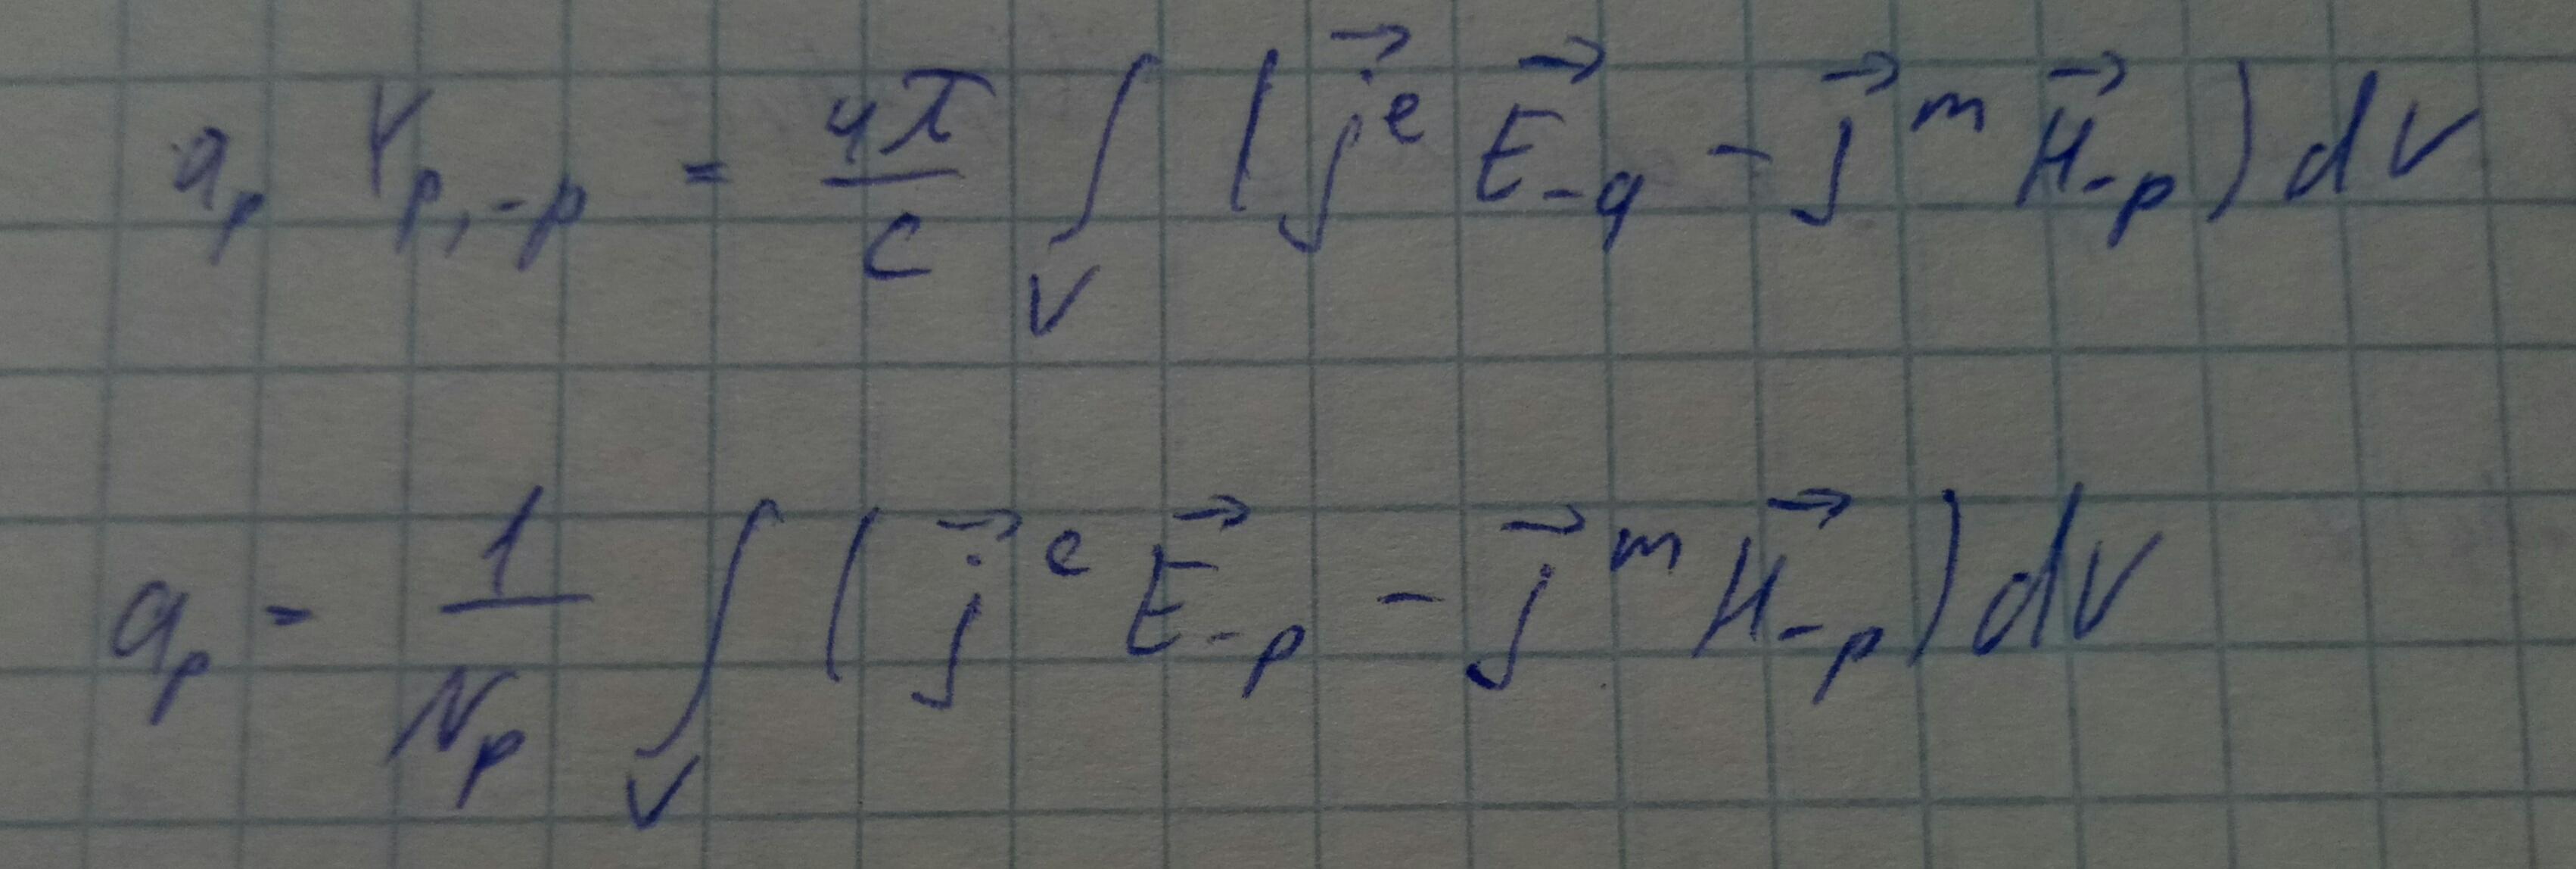 a_p Y_{p,-p} = \frac{4\pi}{c} \int_V (\vec{j}^e \vec{E}_{-q} - \vec{j}^m \vec{H}_{-p}) dV
a_p = \frac{1}{N_p} \int_V (\vec{j}^e \vec{E}_{-p} - \vec{j}^m \vec{H}_{-p}) dV